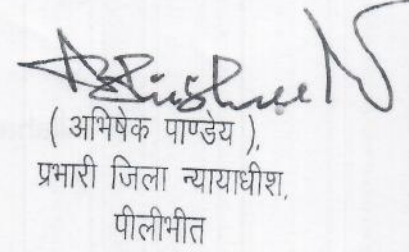 ( अभिषेक पाण्डेय ),
प्रभारी जिला न्यायाधीश,
पीलीभीत